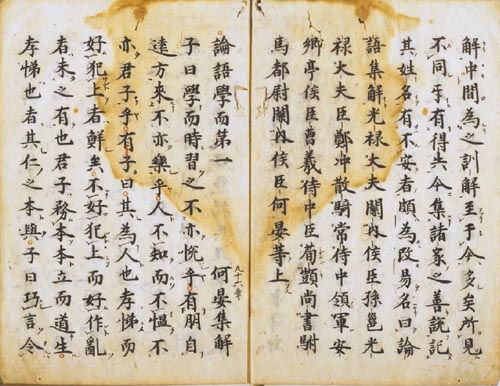 解中間為之訓解至于今多矣所見
不同互有得失今集諸家之善説記
其姓名有不安者頗為改易名曰論
語集解光禄大夫關内侯臣孫邕光
禄大夫臣鄭冲散騎常侍中領軍安
郷亭侯臣曹羲侍中臣荀顗尚書駙
馬都尉關内侯臣何晏等上
論語學而第一 何晏集解
子曰學而時習之不亦悦乎有朋自
遠方來不亦樂乎人不知而不愠不
亦君子乎有子曰其為人也孝悌而
好犯上者鮮矣不好犯上而好作亂
者未之有也君子務本本立而道生
孝悌也者其仁之本與子曰巧言令